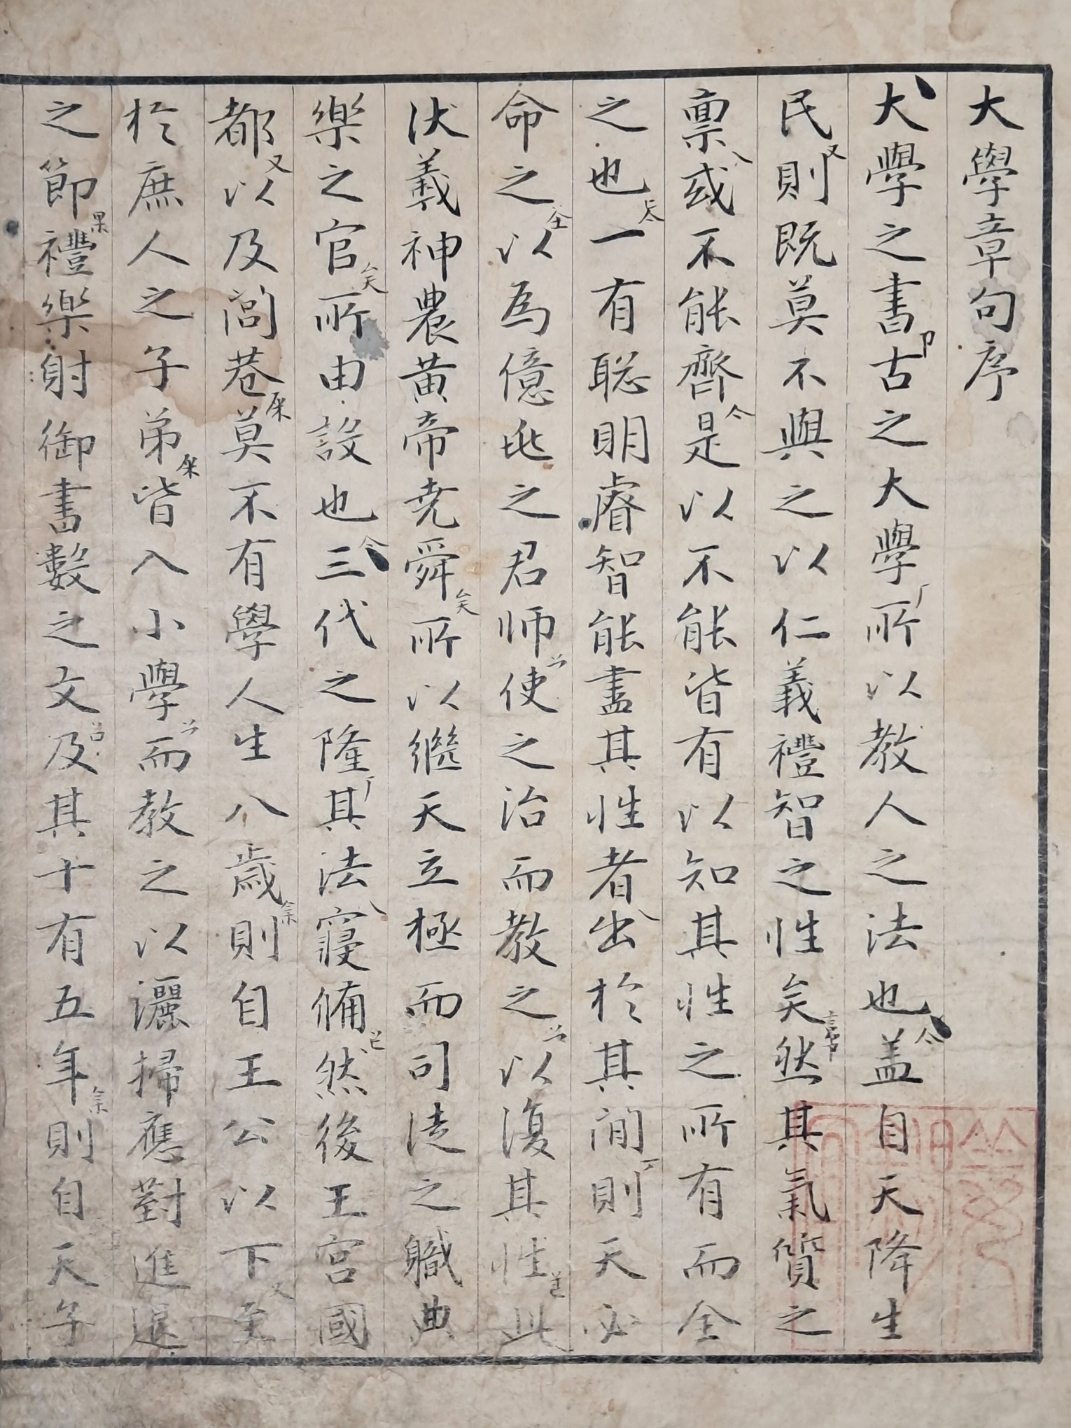 大學章句序
大學之書古之大學所以教人之法也盖自天降生
民則既莫不與之以仁義禮智之性矣然其氣質之
禀或不能齊是以不能皆有以知其性之所有而全
之也一有聡明睿智能盡其性者出於其間則天必
命之以為億兆之君師使之治而教之以復其性此
伏羲神農黄帝尭舜所以繼天立極而司徒之職典
樂之官所由設也三代之隆其法寖俻然後王宮國
都以及閭巷莫不有學人生八歳則自王公以下至
於庶人之子弟皆入小學而教之以灑掃應對進退
之節禮樂射御書數之文及其十有五年則自天子